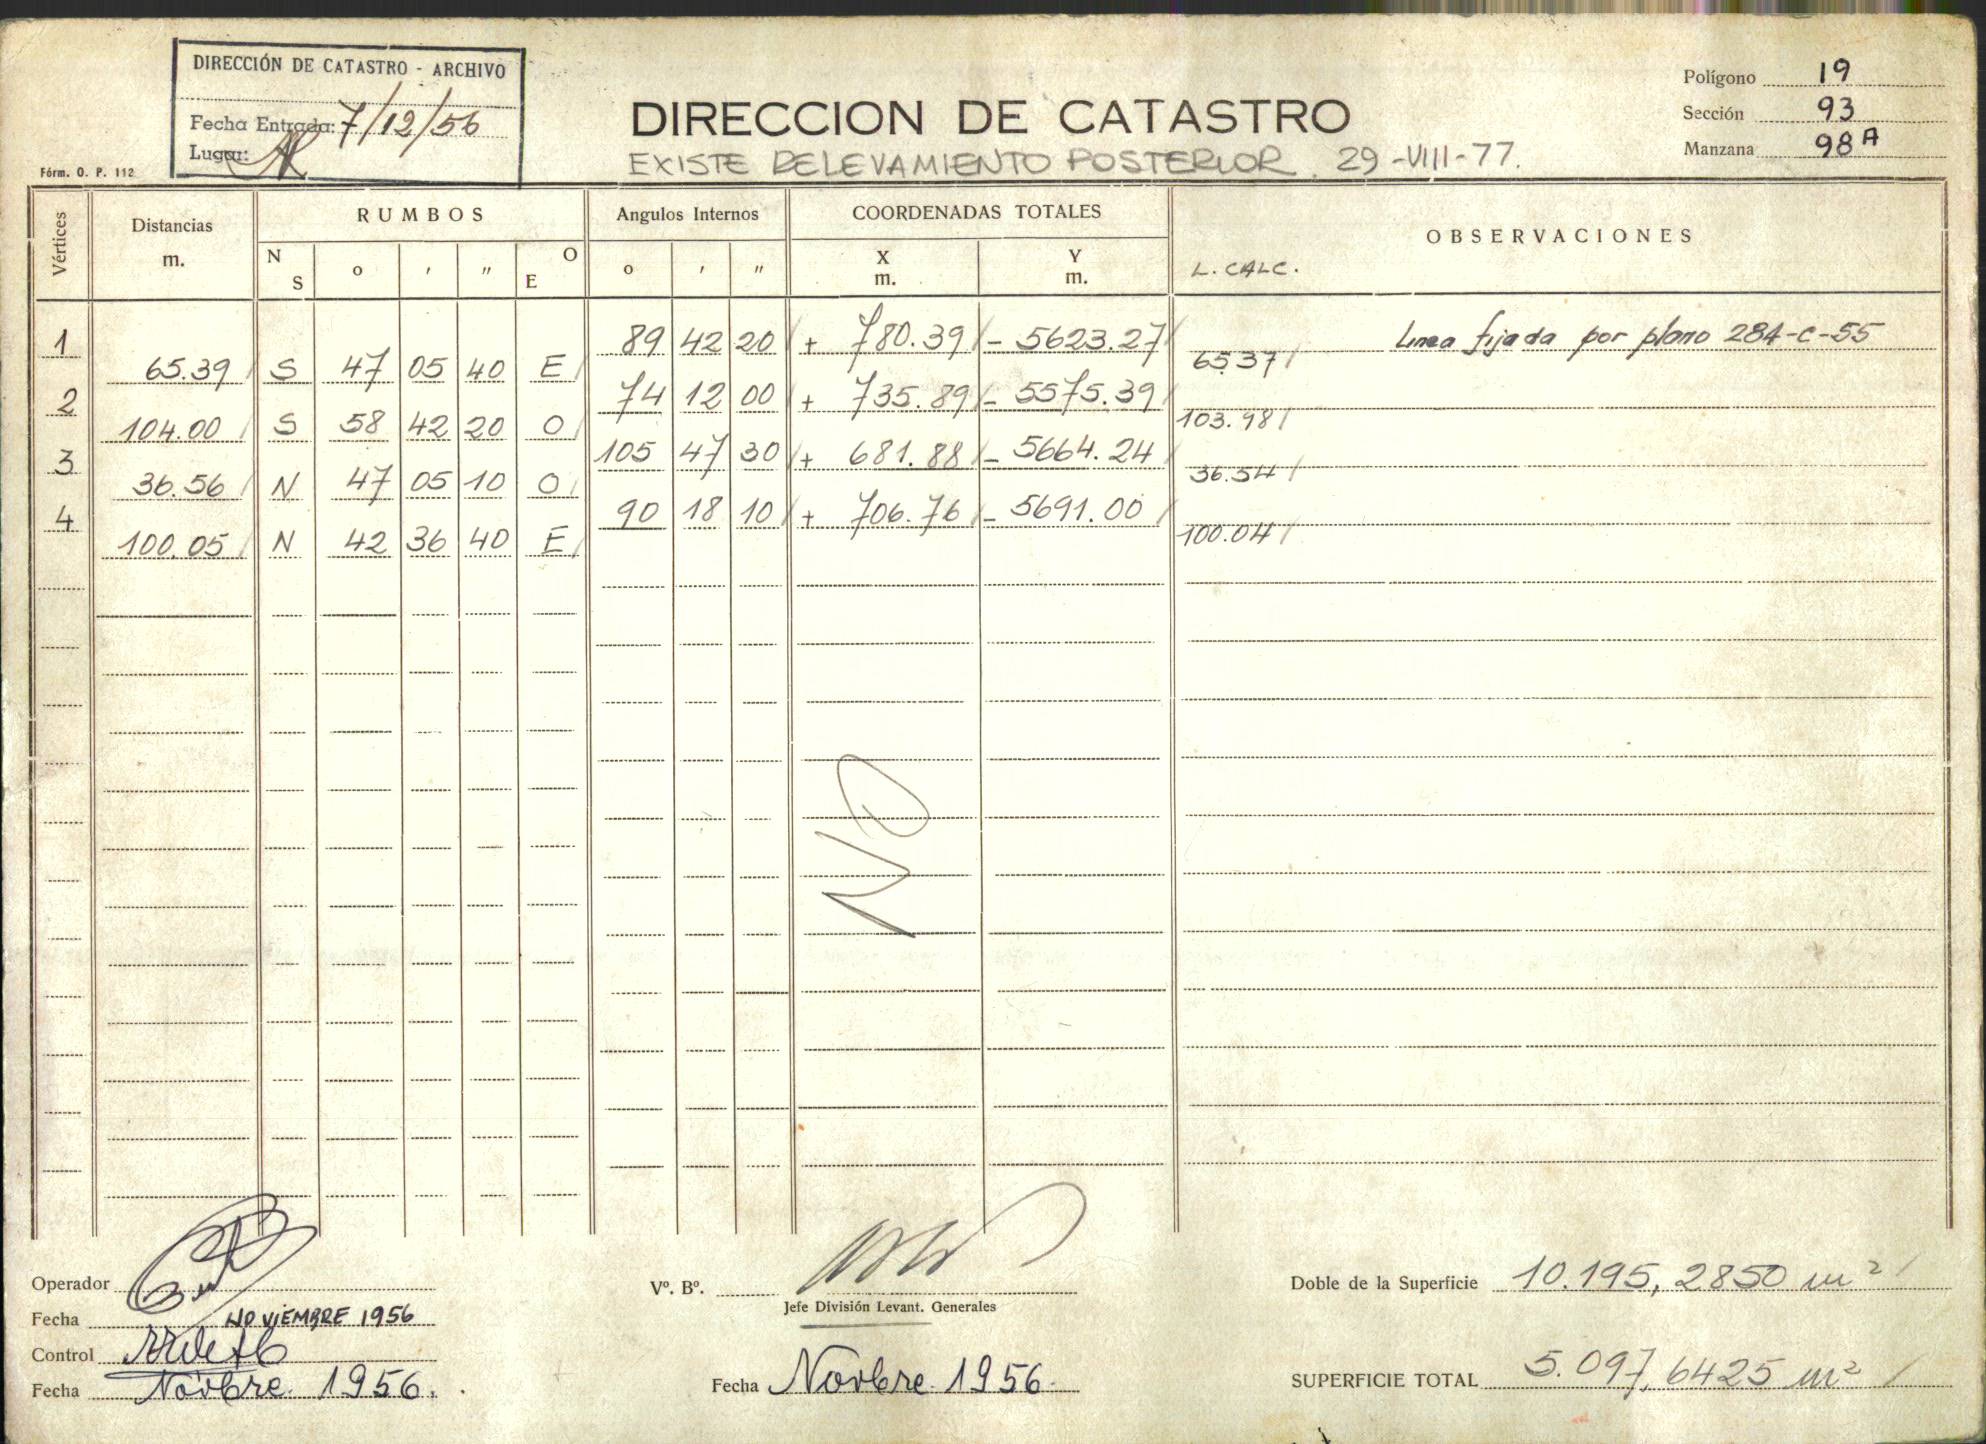 DIRECCIÓN DE CATASTRO - ARCHIVO
Fecha Entrada: 7/12/56
Lugar:
Fórm. O. P. 112
DIRECCION DE CATASTRO
EXISTE RELEVAMIENTO POSTERIOR. 29-VIII-77.
Polígono 19
Sección 93
Manzana 98A
Vértices Distancias m. RUMBOS Angulos Internos COORDENADAS TOTALES OBSERVACIONES
N S o ' " O E o ' " X m. Y m. L. CALC.
1 89 42 20 + 780.39 - 5623.27 Linea fijada por plano 284-C-55
65.39 S 47 05 40 E 65.37
2 74 12 00 + 735.89 - 5575.39
104.00 S 58 42 20 O 103.98
3 105 47 30 + 681.88 - 5664.24
36.56 N 47 05 10 O 36.54
4 90 18 10 + 706.76 - 5691.00
100.05 N 42 36 40 E 100.04
NO
Operador
Fecha NOVIEMBRE 1956
Control
Fecha Novbre. 1956.
Vº. Bº.
Jefe División Levant. Generales
Fecha Novbre. 1956.
Doble de la Superficie 10.195,2850 m²
SUPERFICIE TOTAL 5.097,6425 m²